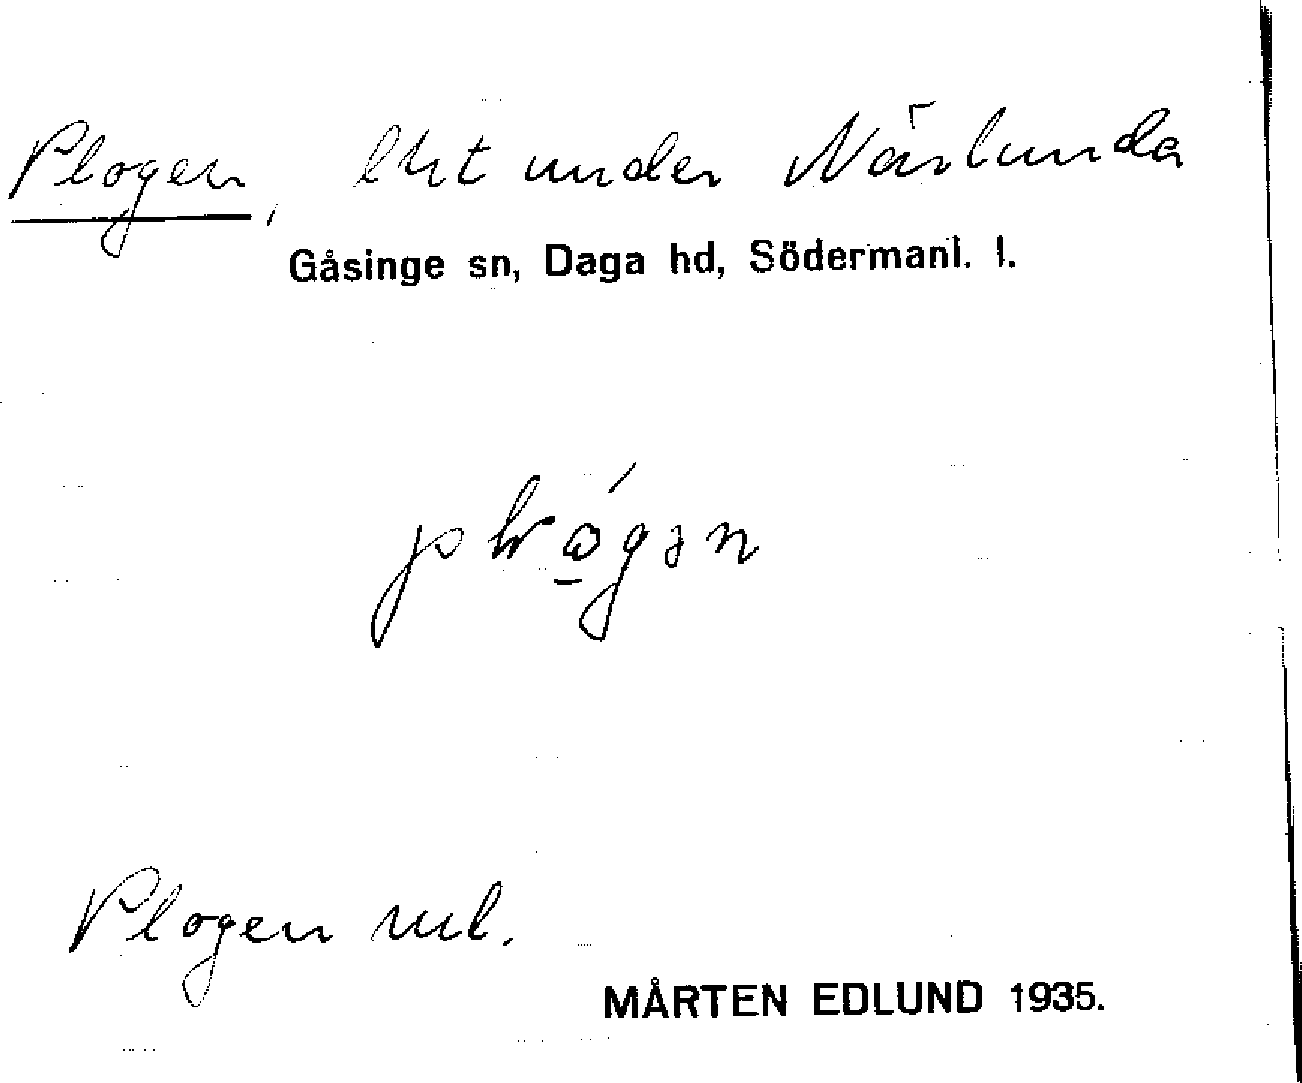 Plogen, lht under Närlunda
Gåsinge sn, Daga hd, Södermanl. l.
Plogen
MÅRTEN EDLUND 1935.